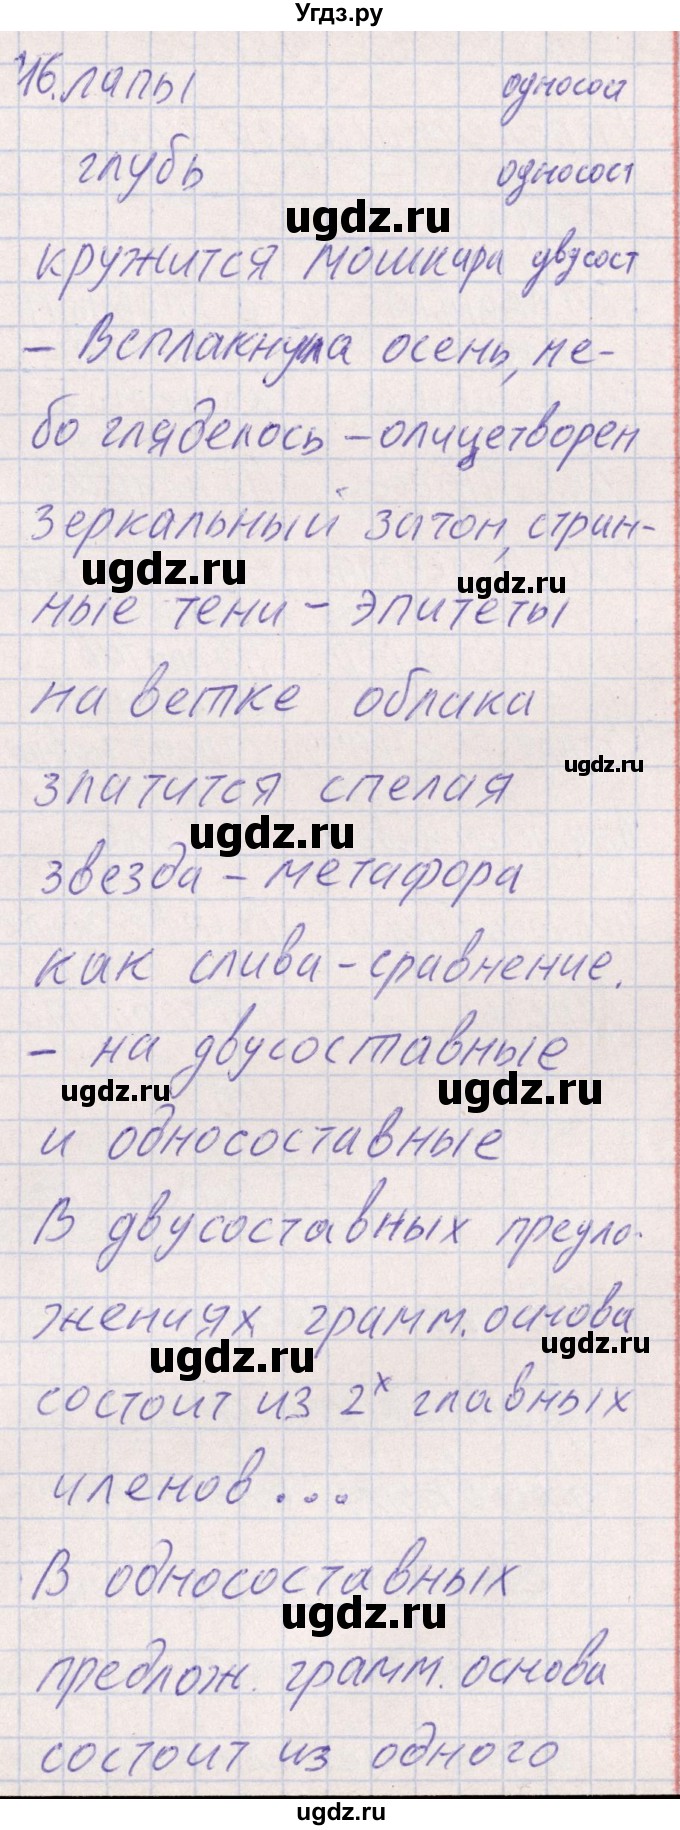 Угдз.ру
16. лапы односост
глубь односост
ugdz.ru
кружится мошкара двусост
- Всплакнула осень, не-
бо гляделось - олицетворен
зеркальный затон, стран-
ugdz.ru
ugdz.ru
ные тени - эпитеты
на ветке облака
ugdz.ru
златится спелая
ugdz.ru
звезда - метафора
как слива - сравнение.
- на двусоставные
ugdz.ru
ugdz.ru
и односоставные
В двусоставных предло-
жениях грамм. основа
ugdz.ru
ugdz.ru
состоит из 2х главных
членов...
В односоставных
ugdz.ru
предлож. грамм. основа
состоит из одного
ugdz.ru